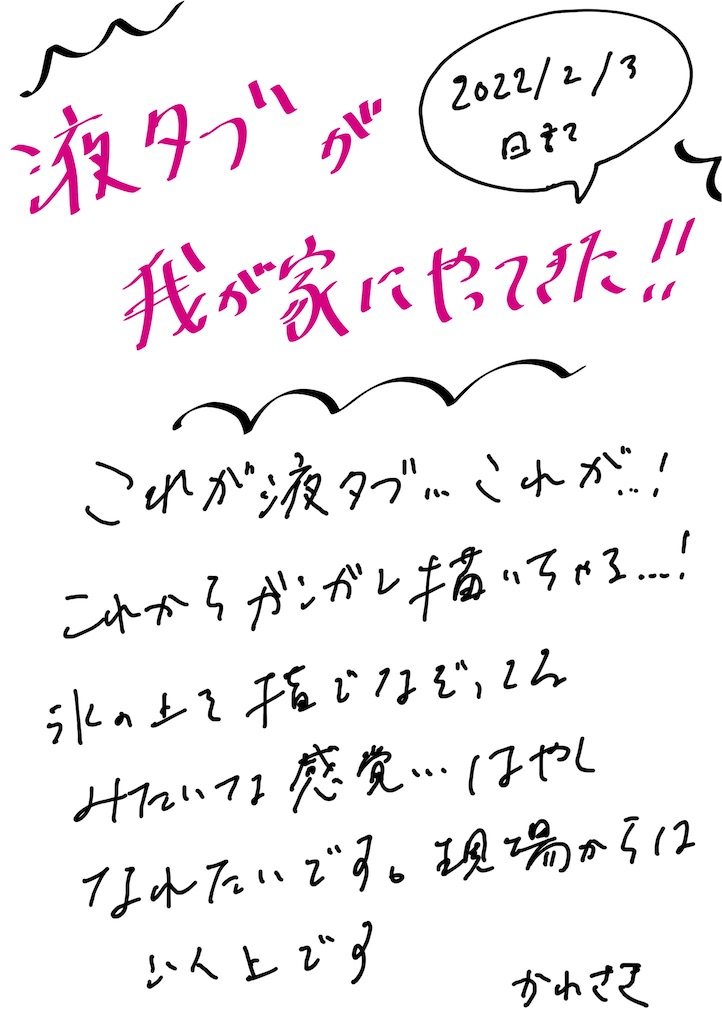 液タブが
2022/2/3
日まで
我が家にやってきた!!
これが液タブ…これが…!
これからガンガン描いちゃる…!
氷の上を指でなぞってん
みたいな感覚…はやく
なれたいです。現場からは
い人上です
かわさき